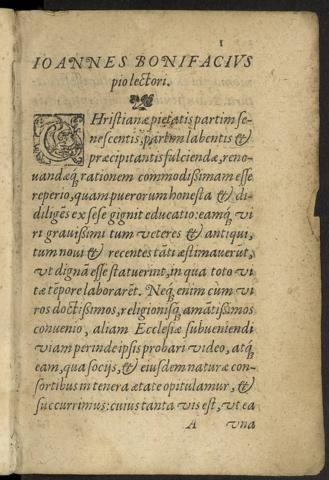 1
IOANNES BONIFACIVS
pio lectori.
CHristianæ pietatis partim se-
nescentis, partim labentis &
præcipitantis fulciendæ, reno-
uandæq́; rationem commodissimam esse
reperio, quam puerorum honesta & di-
diligẽs ex sese gignit educatio: eamq́; vi
ri grauissimi tum veteres & antiqui,
tum noui & recentes tãti æstimauerũt,
vt dignã esse statuerint, in qua toto vi
tæ tẽpore laborarẽt. Neq́; enim cum vi
ros doctissimos, religionisq́; amãtissimos
conuenio, aliam Ecclesiæ subueniendi
viam perinde ipsis probari video, atq́;
eam, qua socijs, & eiusdem naturæ con-
sortibus in tenera ætate opitulamur, &
succurrimus: cuius tanta vis est, vt ea
A vna